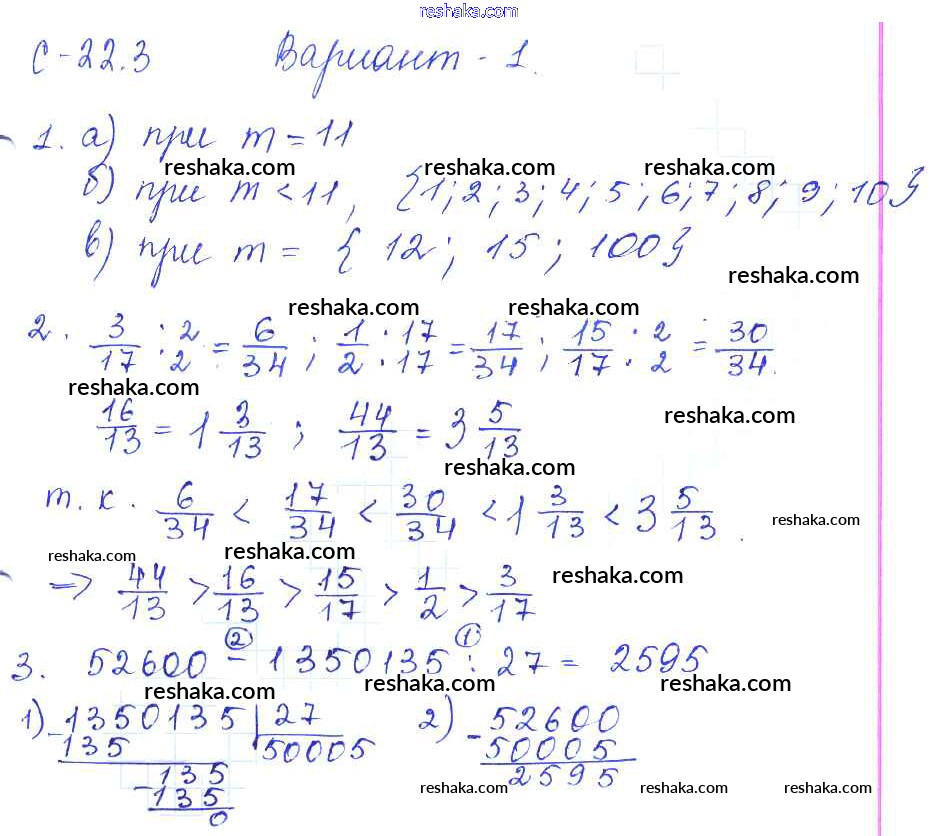 reshaka.com
С-22.3 Вариант - 1.
1. а) при m = 11
reshaka.com reshaka.com reshaka.com
б) при m < 11, {1; 2; 3; 4; 5; 6; 7; 8; 9; 10}
в) при m = { 12; 15; 100}
reshaka.com
reshaka.com reshaka.com
2. 3/17 · 2/2 = 6/34 ; 1/2 · 17/17 = 17/34 ; 15/17 · 2/2 = 30/34.
reshaka.com
16/13 = 1 3/13 ; 44/13 = 3 5/13
reshaka.com
reshaka.com
т.к. 6/34 < 17/34 < 30/34 < 1 3/13 < 3 5/13.
reshaka.com
reshaka.com reshaka.com
=> 44/13 > 16/13 > 15/17 > 1/2 > 3/17
reshaka.com
② ①
3. 52600 - 1350135 : 27 = 2595
reshaka.com reshaka.com reshaka.com
1) 1350135 | 27 2) - 52600
- 135 50005 50005
135 2595
- 135
0
reshaka.com reshaka.com reshaka.com
reshaka.com reshaka.com reshaka.com